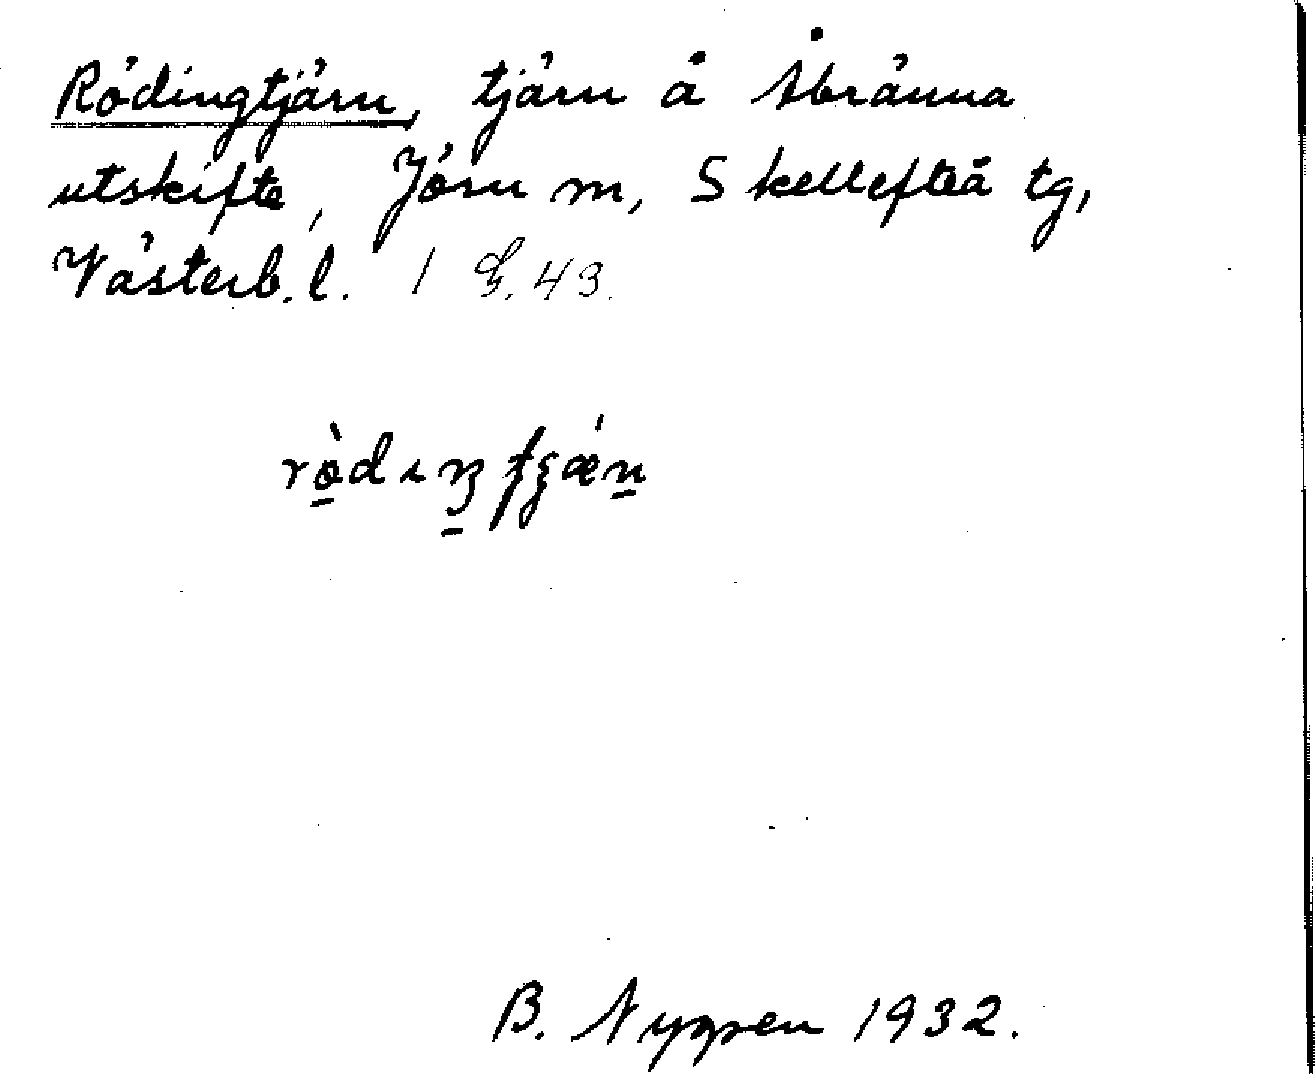 Rödingtjärn, tjärn å Åbränna
utskifte, Jörn m, Skellefteå tg,
Västerb. l. 1 G. 43.
B. Nygren 1932.